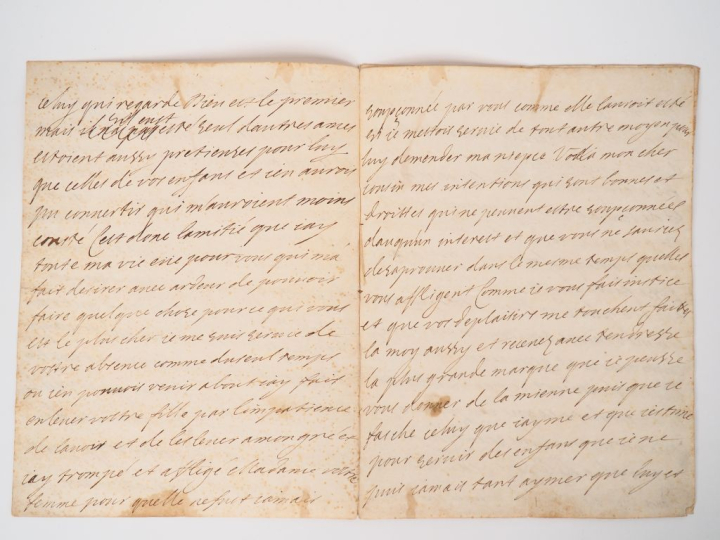 celuy qui regarde Dieu est le premier
mais il eust este seul dautres ames
estoient aussy pretieuses pour luy
que celles de vos enfans et ien aurois
pu convertir qui mauroient moins
cousté Cest donc lamitié que iay
toute ma vie eue pour vous qui ma
fait desirer avec ardeur de pouvoir
faire quelque chose pour ce qui vous
est le plus cher ie me suis servie de
vostre absence comme du seul temps
ou ien pouvois venir about iay fait
enlever vostre fille par limpatience
de lavoir et de leslever a mon gré et
iay trompé et affligé Madame vostre
femme pour quelle ne fust iamais
soupçonnée par vous comme elle lauroit esté
si ie mestois servie de tout autre moyen pour
luy demender ma niepce Voilà mon cher
cousin mes intentions qui sont bonnes et
droittes qui ne peuvent estre soupçonnées
daucun interest et que vous ne sauriez
desaprouver dans le mesme temps quelles
vous affligent Comme ie vous fait iustice
et que vos deplaisirs me touchent faittes
la moy aussy et recevez avec tendresse
la plus grande marque que ie puisse
vous donner de la mienne puis que ie
fasche celuy que iayme et que iestime
pour servir des enfans que ie ne
puis iamais tant aymer que luy et